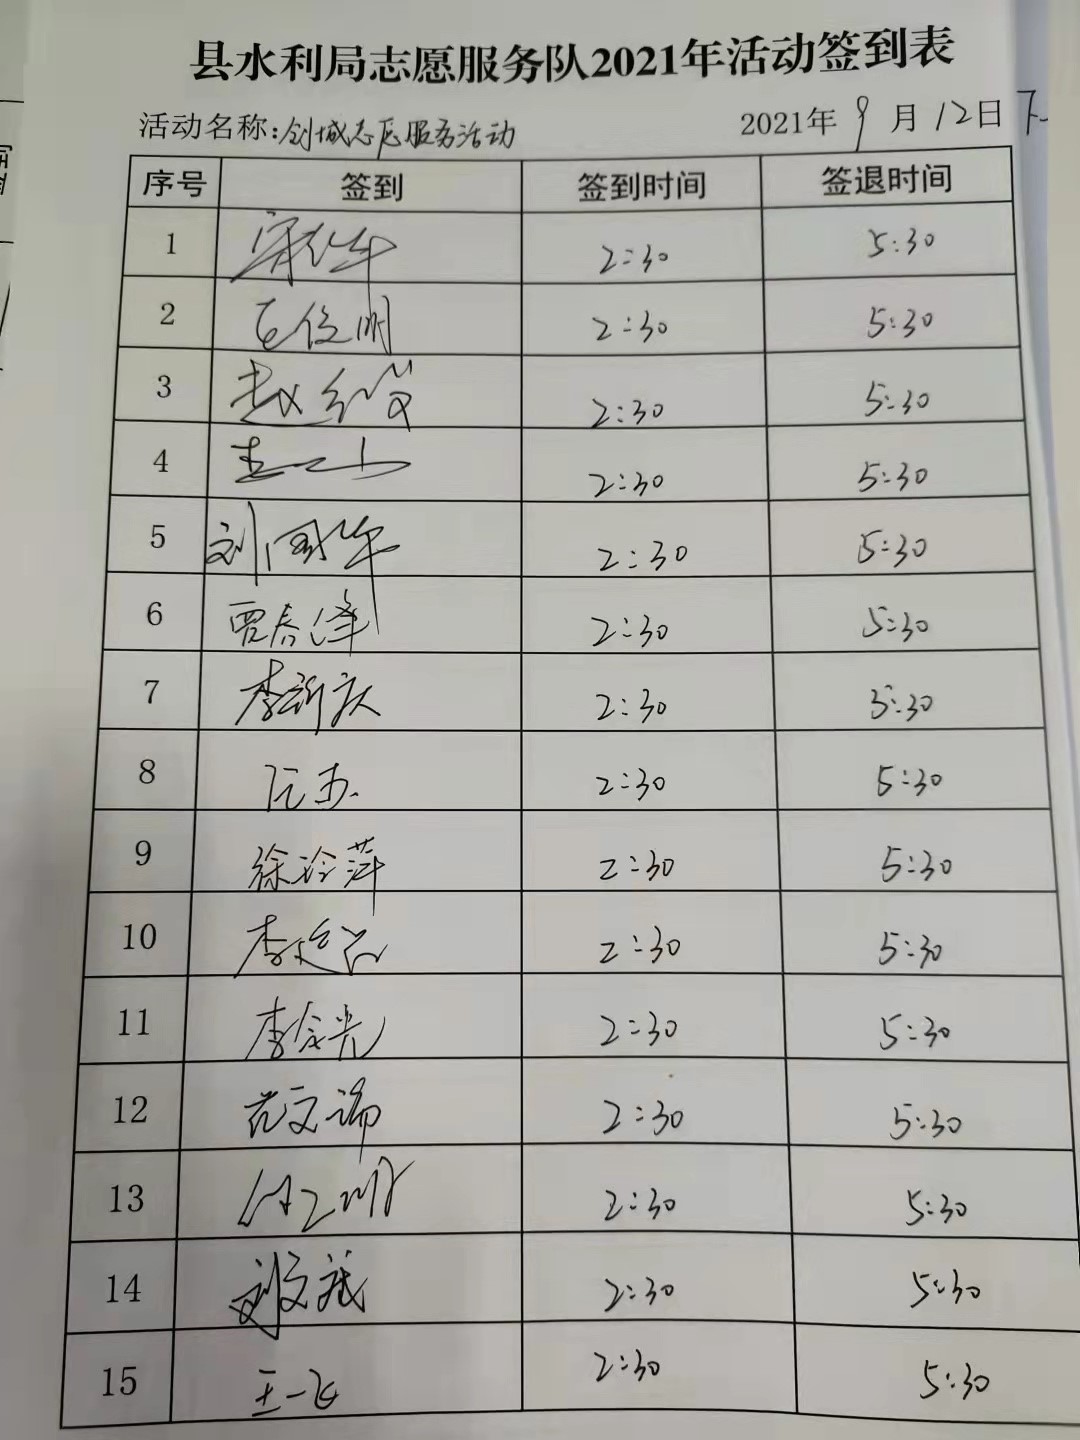 县水利局志愿服务队2021年活动签到表
活动名称:创城志愿服务活动 2021年9月12日下
序号 签到 签到时间 签退时间
1 2:30 5:30
2 2:30 5:30
3 赵 2:30 5:30
4 2:30 5:30
5 刘国华 2:30 5:30
6 贾春泽 2:30 5:30
7 李新庆 2:30 5:30
8 2:30 5:30
9 徐玲萍 2:30 5:30
10 李延 2:30 5:30
11 李金光 2:30 5:30
12 范文瑞 2:30 5:30
13 2:30 5:30
14 刘文斌 2:30 5:30
15 王一飞 2:30 5:30